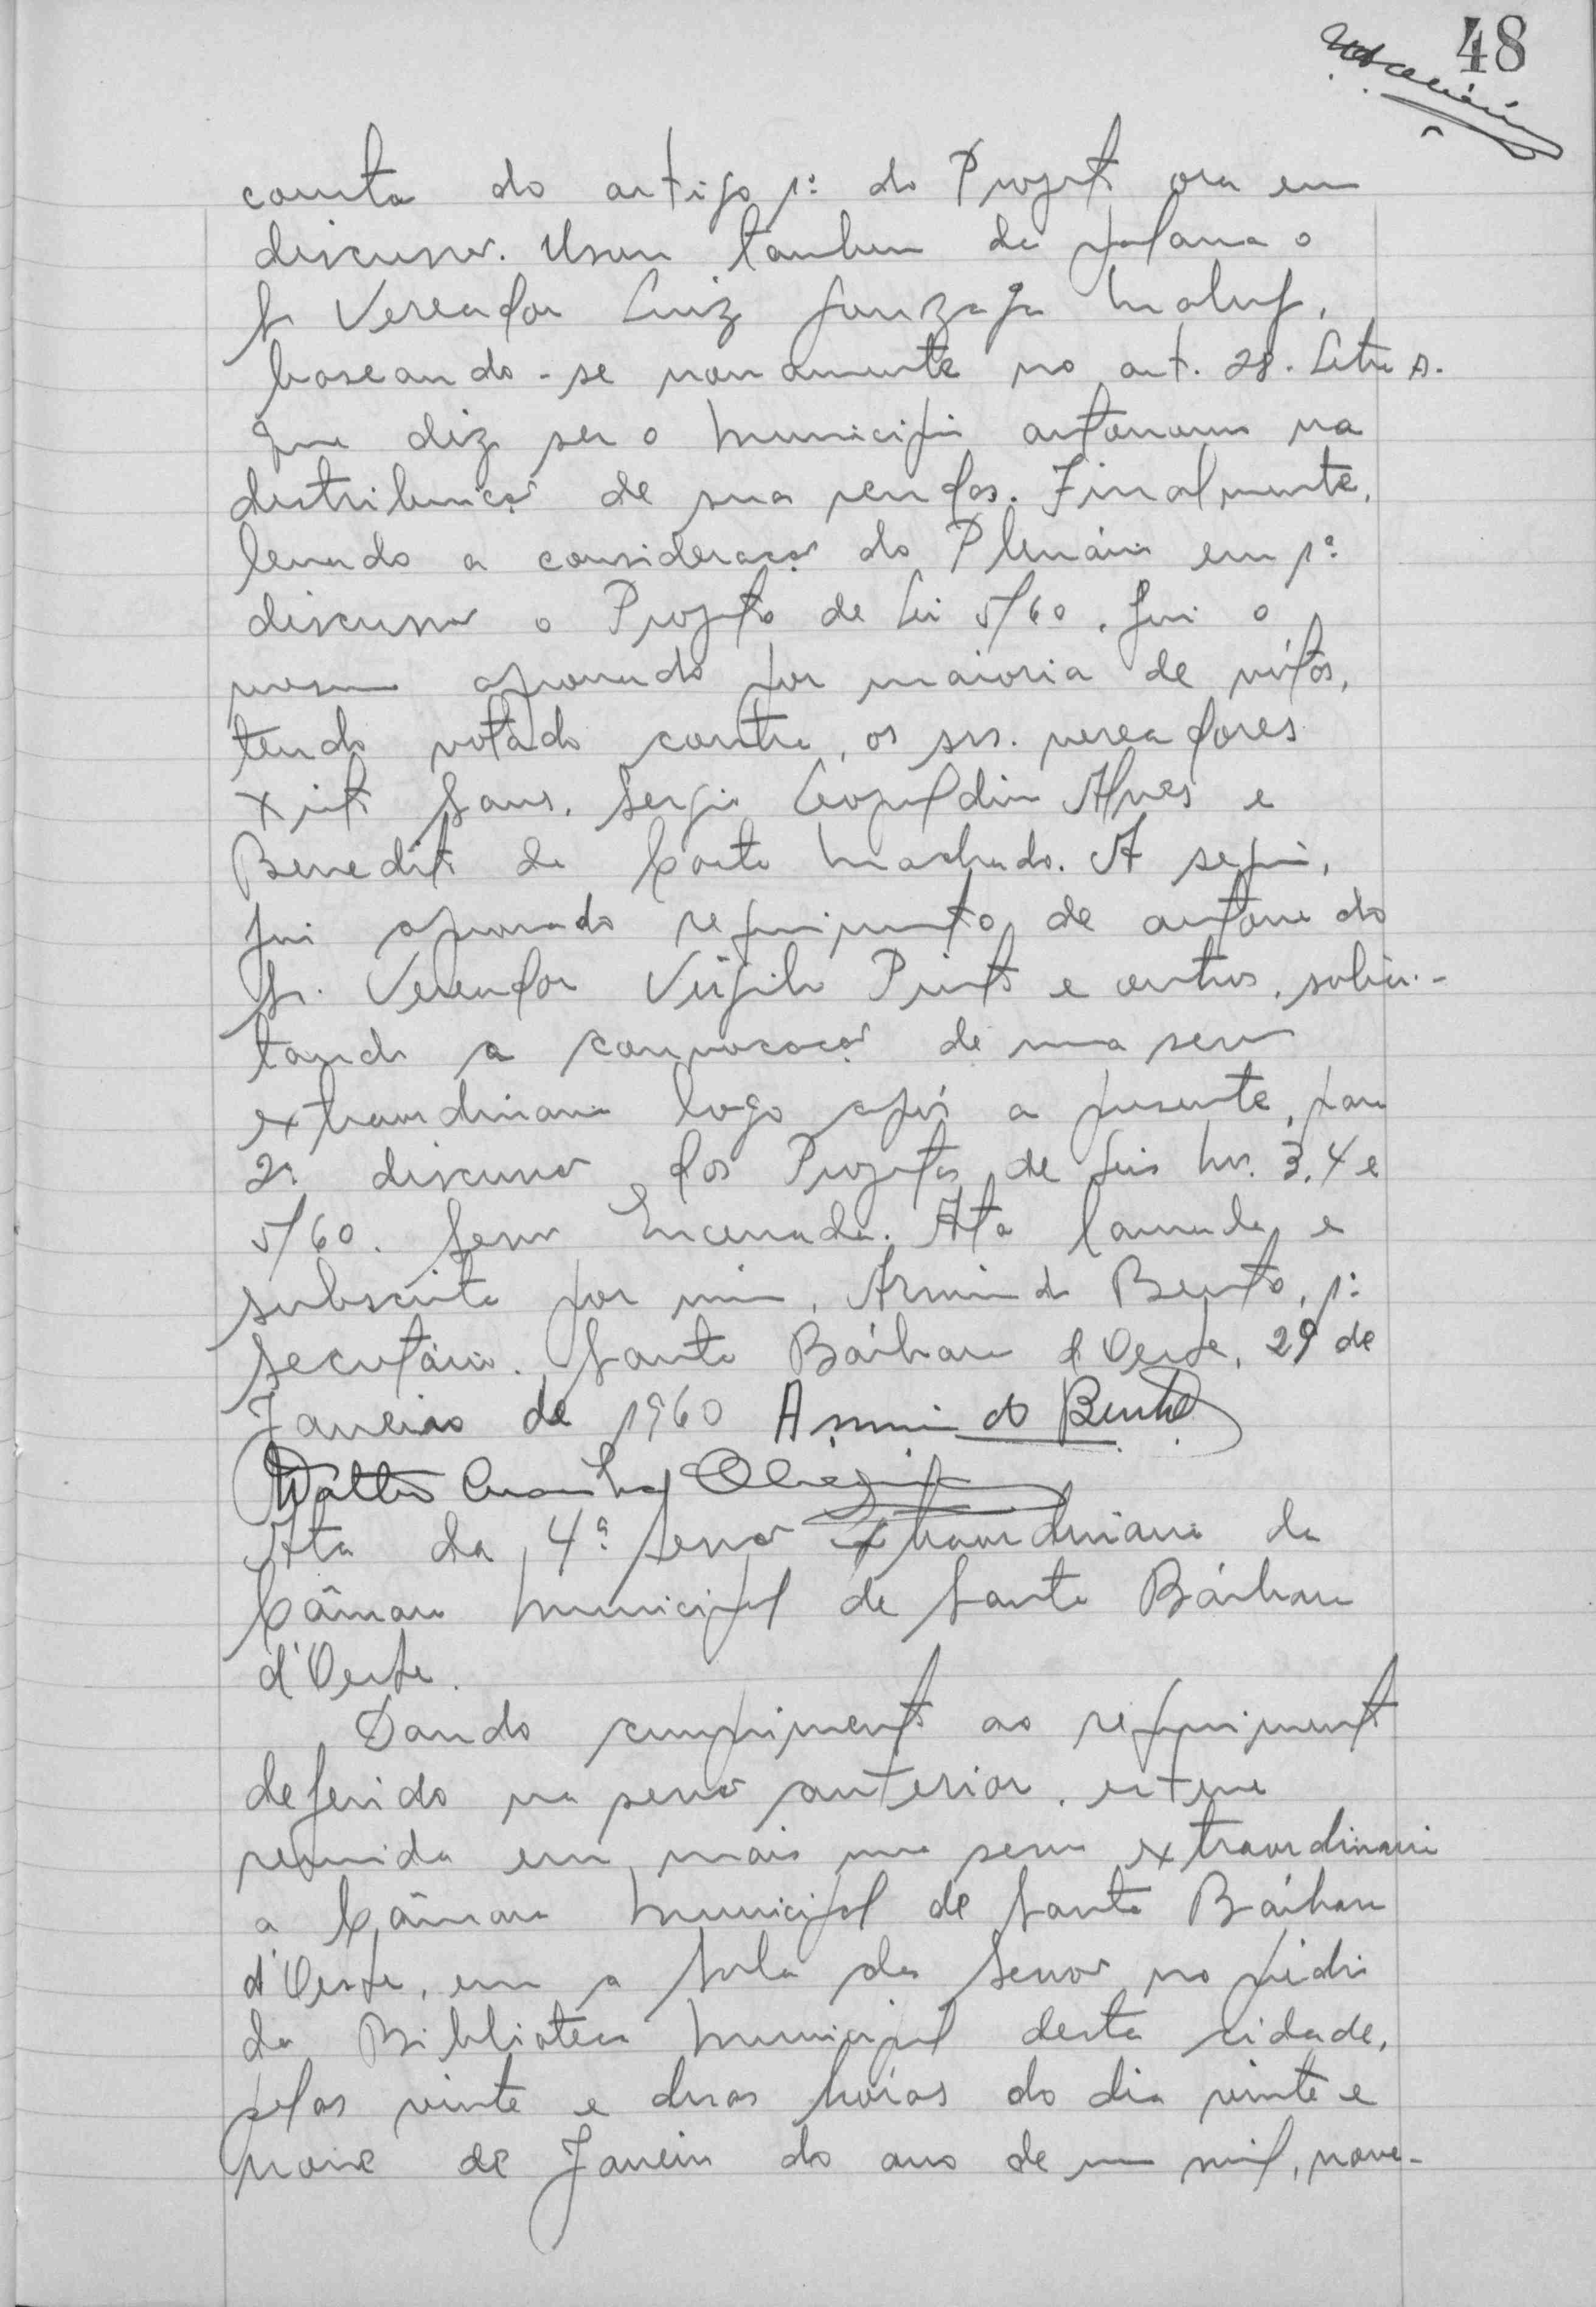 48
consta do artigo 1º do Projeto ora em
discussão. Usou tambem da palavra o
Sr Vereador Luiz Gonzaga Maluf,
baseando-se novamente no art. 28. Letra A.
que diz ser o Municipio autonomo na
distribuição de sua rendas. Finalmente,
levado a consideração do Plenário em 1ª
discussão o Projeto de Lei 5/60, foi o
mesmo aprovado por maioria de vótos,
tendo votado contra, os srs. vereadores
Sans, Sergio Leopoldino Alves e
Benedito da Costa Machado. A seguir,
foi aprovado requerimento de autoria do
Sr. Vereador Virgilio Pinto e outros, solici-
tando a convocação de uma sessão
extraordinaria logo após a presente, para
2ª discussão dos Projetos de Leis Nrs. 3, 4 e
5/60. Sessão Encerrada. Ata lavrada e
subscrita por mim, Armindo Bento, 1º
Secretário. Santa Bárbara d'Oeste, 29 de
Janeiro de 1960 Armindo Bento
Ata da 4ª Sessão Extraordinaria da
Câmara Municipal de Santa Bárbara
d'Oeste.
Dando cumprimento ao requerimento
deferido na sessão anterior, esteve
reunida em mais uma sessão extraordinaria
a Câmara Municipal de Santa Bárbara
d'Oeste, em a Sala das Sessões no prédio
da Biblioteca Municipal desta cidade,
pelas vinte e duas horas do dia vinte e
nove de Janeiro do ano de um mil, nove-